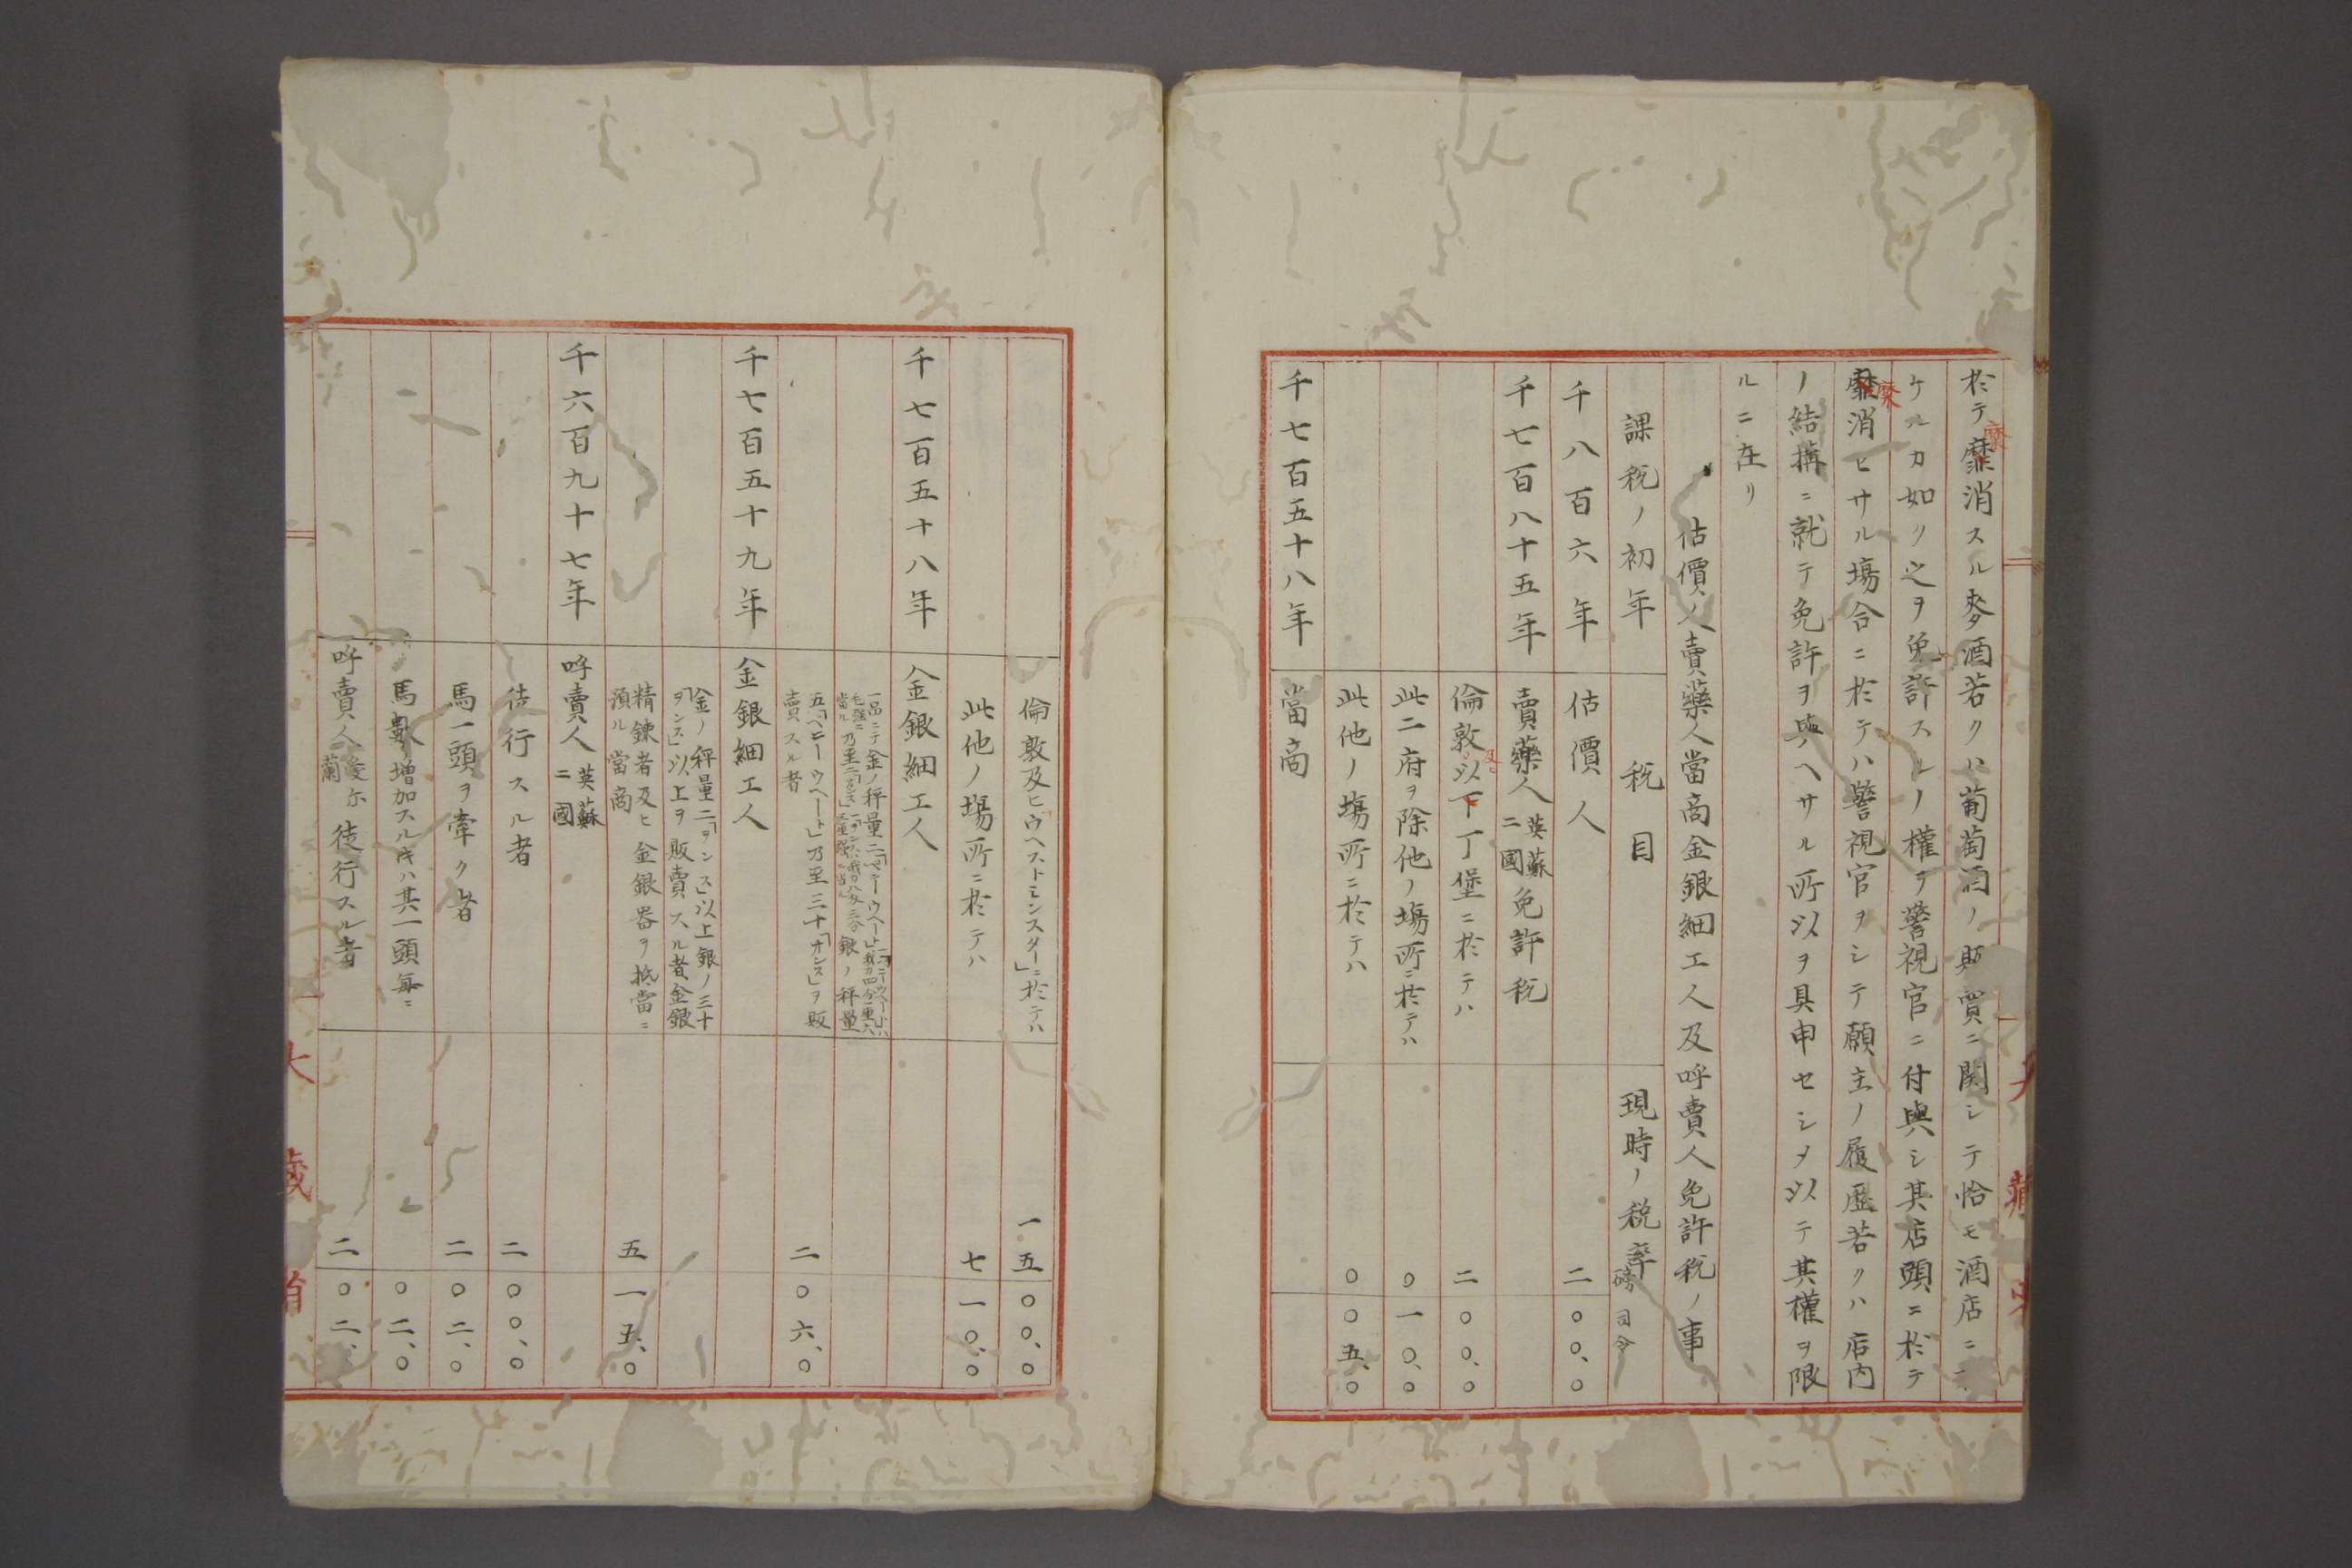 於テ靡消スル麥酒若クハ葡萄酒ノ販賣ニ関シテ恰モ酒店ニ
糜
ケルカ如ク之ヲ免許スルノ權ヲ警視官ニ付與シ其店頭ニ於テ
糜
靡消セサル塲合ニ於テハ警視官ヲシテ願主ノ履歴若クハ店内
ノ結搆ニ就テ免許ヲ與ヘサル所以ヲ具申セシメ以テ其權ヲ限
ルニ在リ
估價人賣藥人當商金銀細工人及呼賣人免許税ノ事
課税ノ初年 税目 現時ノ税率 磅 司 令
千八百六年 估價人 二 〇〇、〇
千七百八十五年 賣藥人 英蘇二國 免許税
倫敦以下丁堡ニ於テハ 二 〇〇、〇
及ヒ
此二府ヲ除他ノ塲所ニ於テハ 〇 一〇、〇
此他ノ塲所ニ於テハ 〇 〇五、〇
千七百五十八年 當商
倫敦及ヒ「ウヘストミンスター」ニ於テハ 一五 〇〇、〇
此他ノ塲所ニ於テハ 七 一〇、〇
千七百五十八年 金銀細工人
一品ニテ金ノ秤量二「ペニーウヘート」
乃至二「オンス」 銀ノ秤量
五「ペニーウヘート」乃至三十「オンス」ヲ販
賣スル者 二 〇六、〇
千七百五十九年 金銀細工人
金ノ秤量二「ヲンス」以上銀ノ三十
「ヲンス」以上ヲ販賣スル者金銀
精錬者及ヒ金銀器ヲ抵當ニ
預ル當商 五 一五、〇
千六百九十七年 呼賣人 英蘇二國
徒行スル者 二 〇〇、〇
馬一頭ヲ牽ク者 二 〇二、〇
馬數ヲ増加スルキハ其一頭毎ニ 〇二、〇
呼賣人 愛尓蘭 徒行スル者 二 〇二、
大藏省